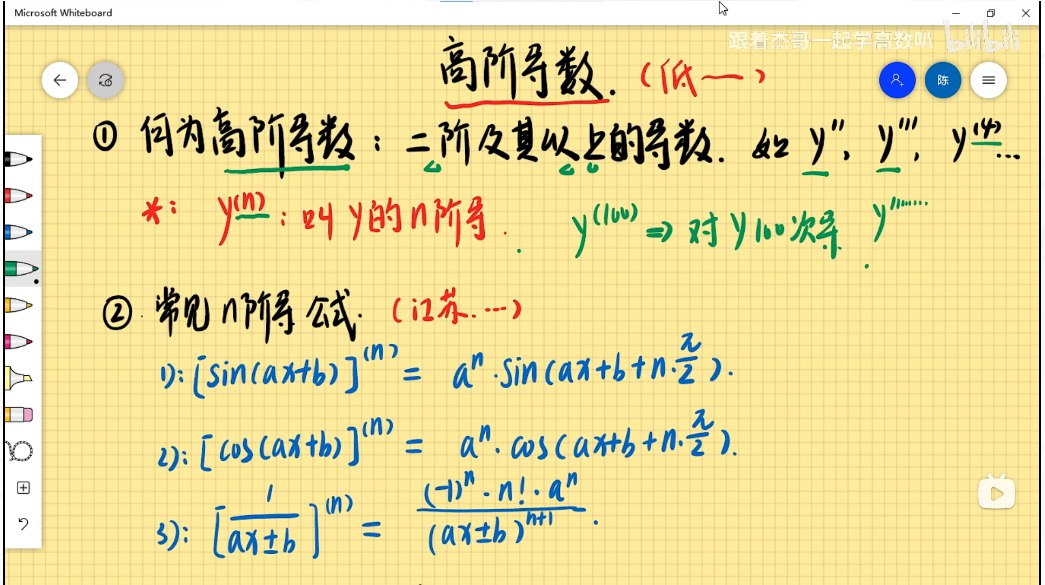 Microsoft Whiteboard
跟着杰哥一起学高数叭 bilibili
高阶导数. (低一)
陈
① 何为高阶导数: 二阶及其以上的导数. 如 y'', y''', y⁽⁴⁾...
*: y⁽ⁿ⁾: 叫 y的n阶导. y⁽¹⁰⁰⁾ ⇒ 对y100次导 y'''''''''
② 常见n阶导公式. (江苏...)
1): [sin(ax+b)]⁽ⁿ⁾ = aⁿ·sin(ax+b+n·π/2).
2): [cos(ax+b)]⁽ⁿ⁾ = aⁿ·cos(ax+b+n·π/2).
3): [1/(ax±b)]⁽ⁿ⁾ = (-1)ⁿ·n!·aⁿ/(ax±b)ⁿ⁺¹.